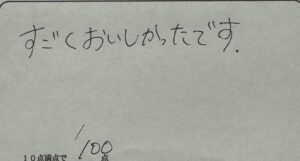 すごくおいしかったです.
10点満点で 100点